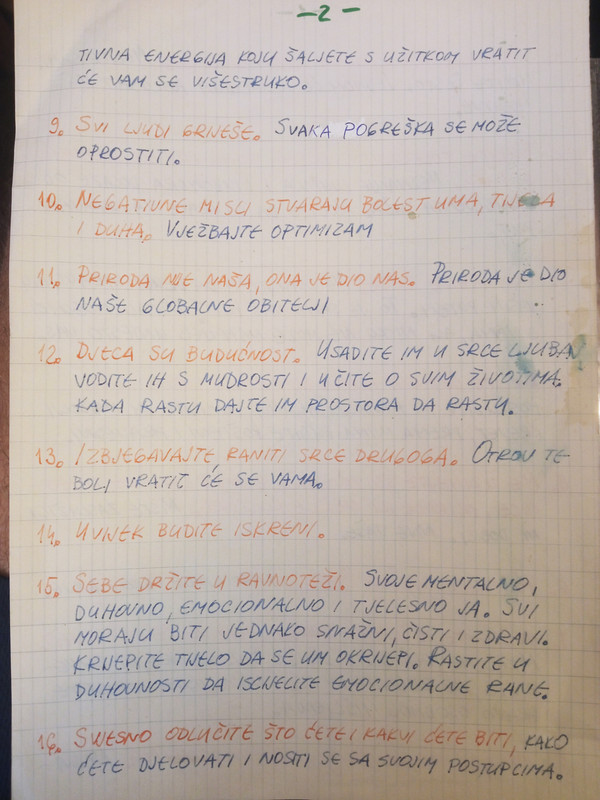 -2-
TIVNA ENERGIJA KOJU ŠALJETE S UŽITKOM VRATIT
ĆE VAM SE VIŠESTRUKO.
9. SVI LJUDI GRIJEŠE. SVAKA POGREŠKA SE MOŽE
OPROSTITI.
10. NEGATIVNE MISLI STVARAJU BOLEST UMA, TIJELA
I DUHA. VJEŽBAJTE OPTIMIZAM
11. PRIRODA NIJE NAŠA, ONA JE DIO NAS. PRIRODA JE DIO
NAŠE GLOBALNE OBITELJI
12. DJECA SU BUDUĆNOST. USADITE IM U SRCE LJUBAV
VODITE IH S MUDROSTI I UČITE O SVIM ŽIVOTIMA.
KADA RASTU DAJTE IM PROSTORA DA RASTU.
13. IZBJEGAVAJTE RANITI SRCE DRUGOGA. OTROV TE
BOLI VRATIT ĆE SE VAMA.
14. UVIJEK BUDITE ISKRENI.
15. SEBE DRŽITE U RAVNOTEŽI. SVOJE MENTALNO,
DUHOVNO, EMOCIONALNO I TJELESNO JA. SVI
MORAJU BITI JEDNAKO SNAŽNI, ČISTI I ZDRAVI.
KRIJEPITE TIJELO DA SE UM OKRIJEPI. RASTITE U
DUHOVNOSTI DA ISCIJELITE EMOCIONALNE RANE.
16. SVJESNO ODLUČITE ŠTO ĆETE I KAKVI ĆETE BITI, KAKO
ĆETE DJELOVATI I NOSITI SE SA SVOJIM POSTUPCIMA.